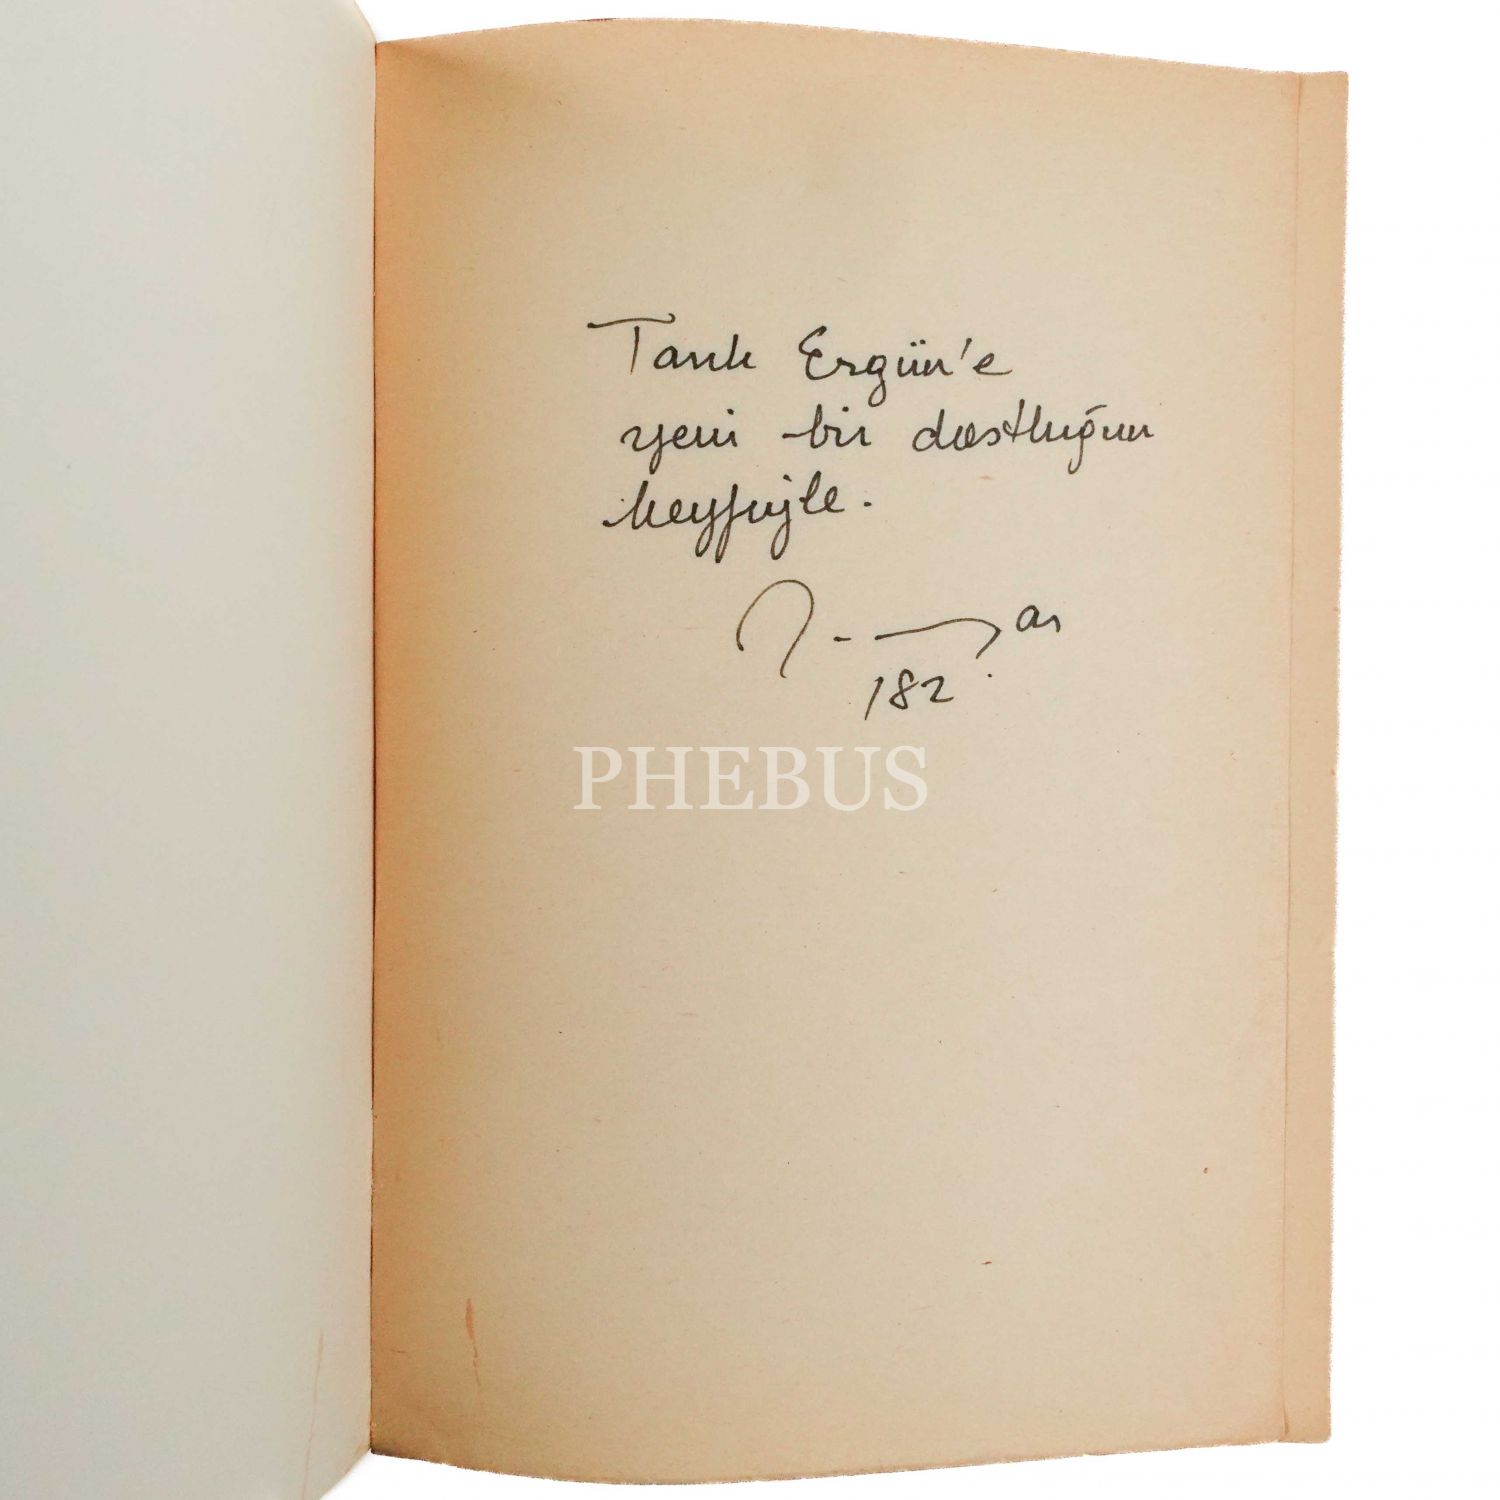 Tarık Ergün'e
yeni bir dostluğun
keyfiyle.
182
PHEBUS